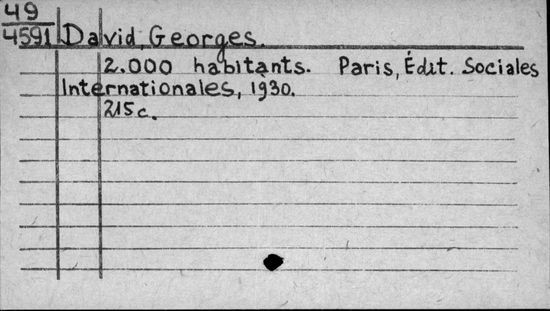 49
4591 David, Georges.
2.000 habitants. Paris, Édit. Sociales
Internationales, 1930.
215 c.